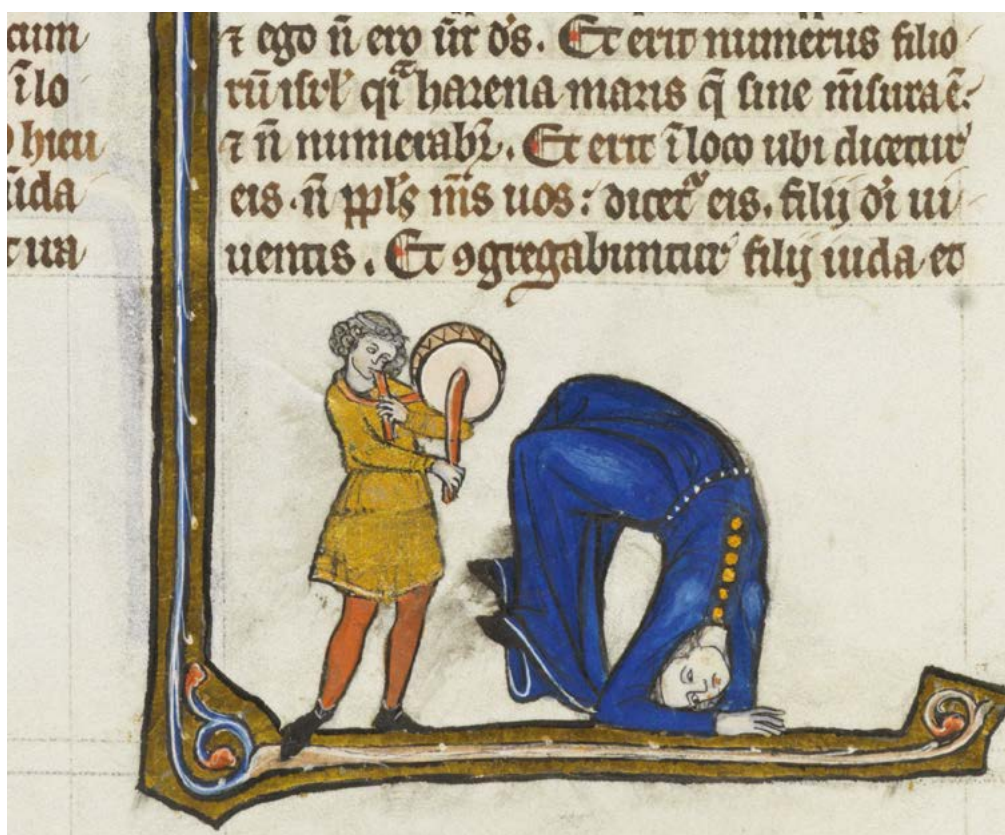 cum
ī lo
hieu
uida
t ua
⁊ ego n̄ ero ūr d̄s. Et erit numerus filio
rū isrl' qͣi harena maris q̄ sine m̄sura ē:
⁊ n̄ numerabr̄. Et erit ī loco ubi dicetur
eis. n̄ ppl's m̄s uos: dicet᷑ eis. filij d̄i ui
uentis. Et ꝯgregabuntur filij iuda et